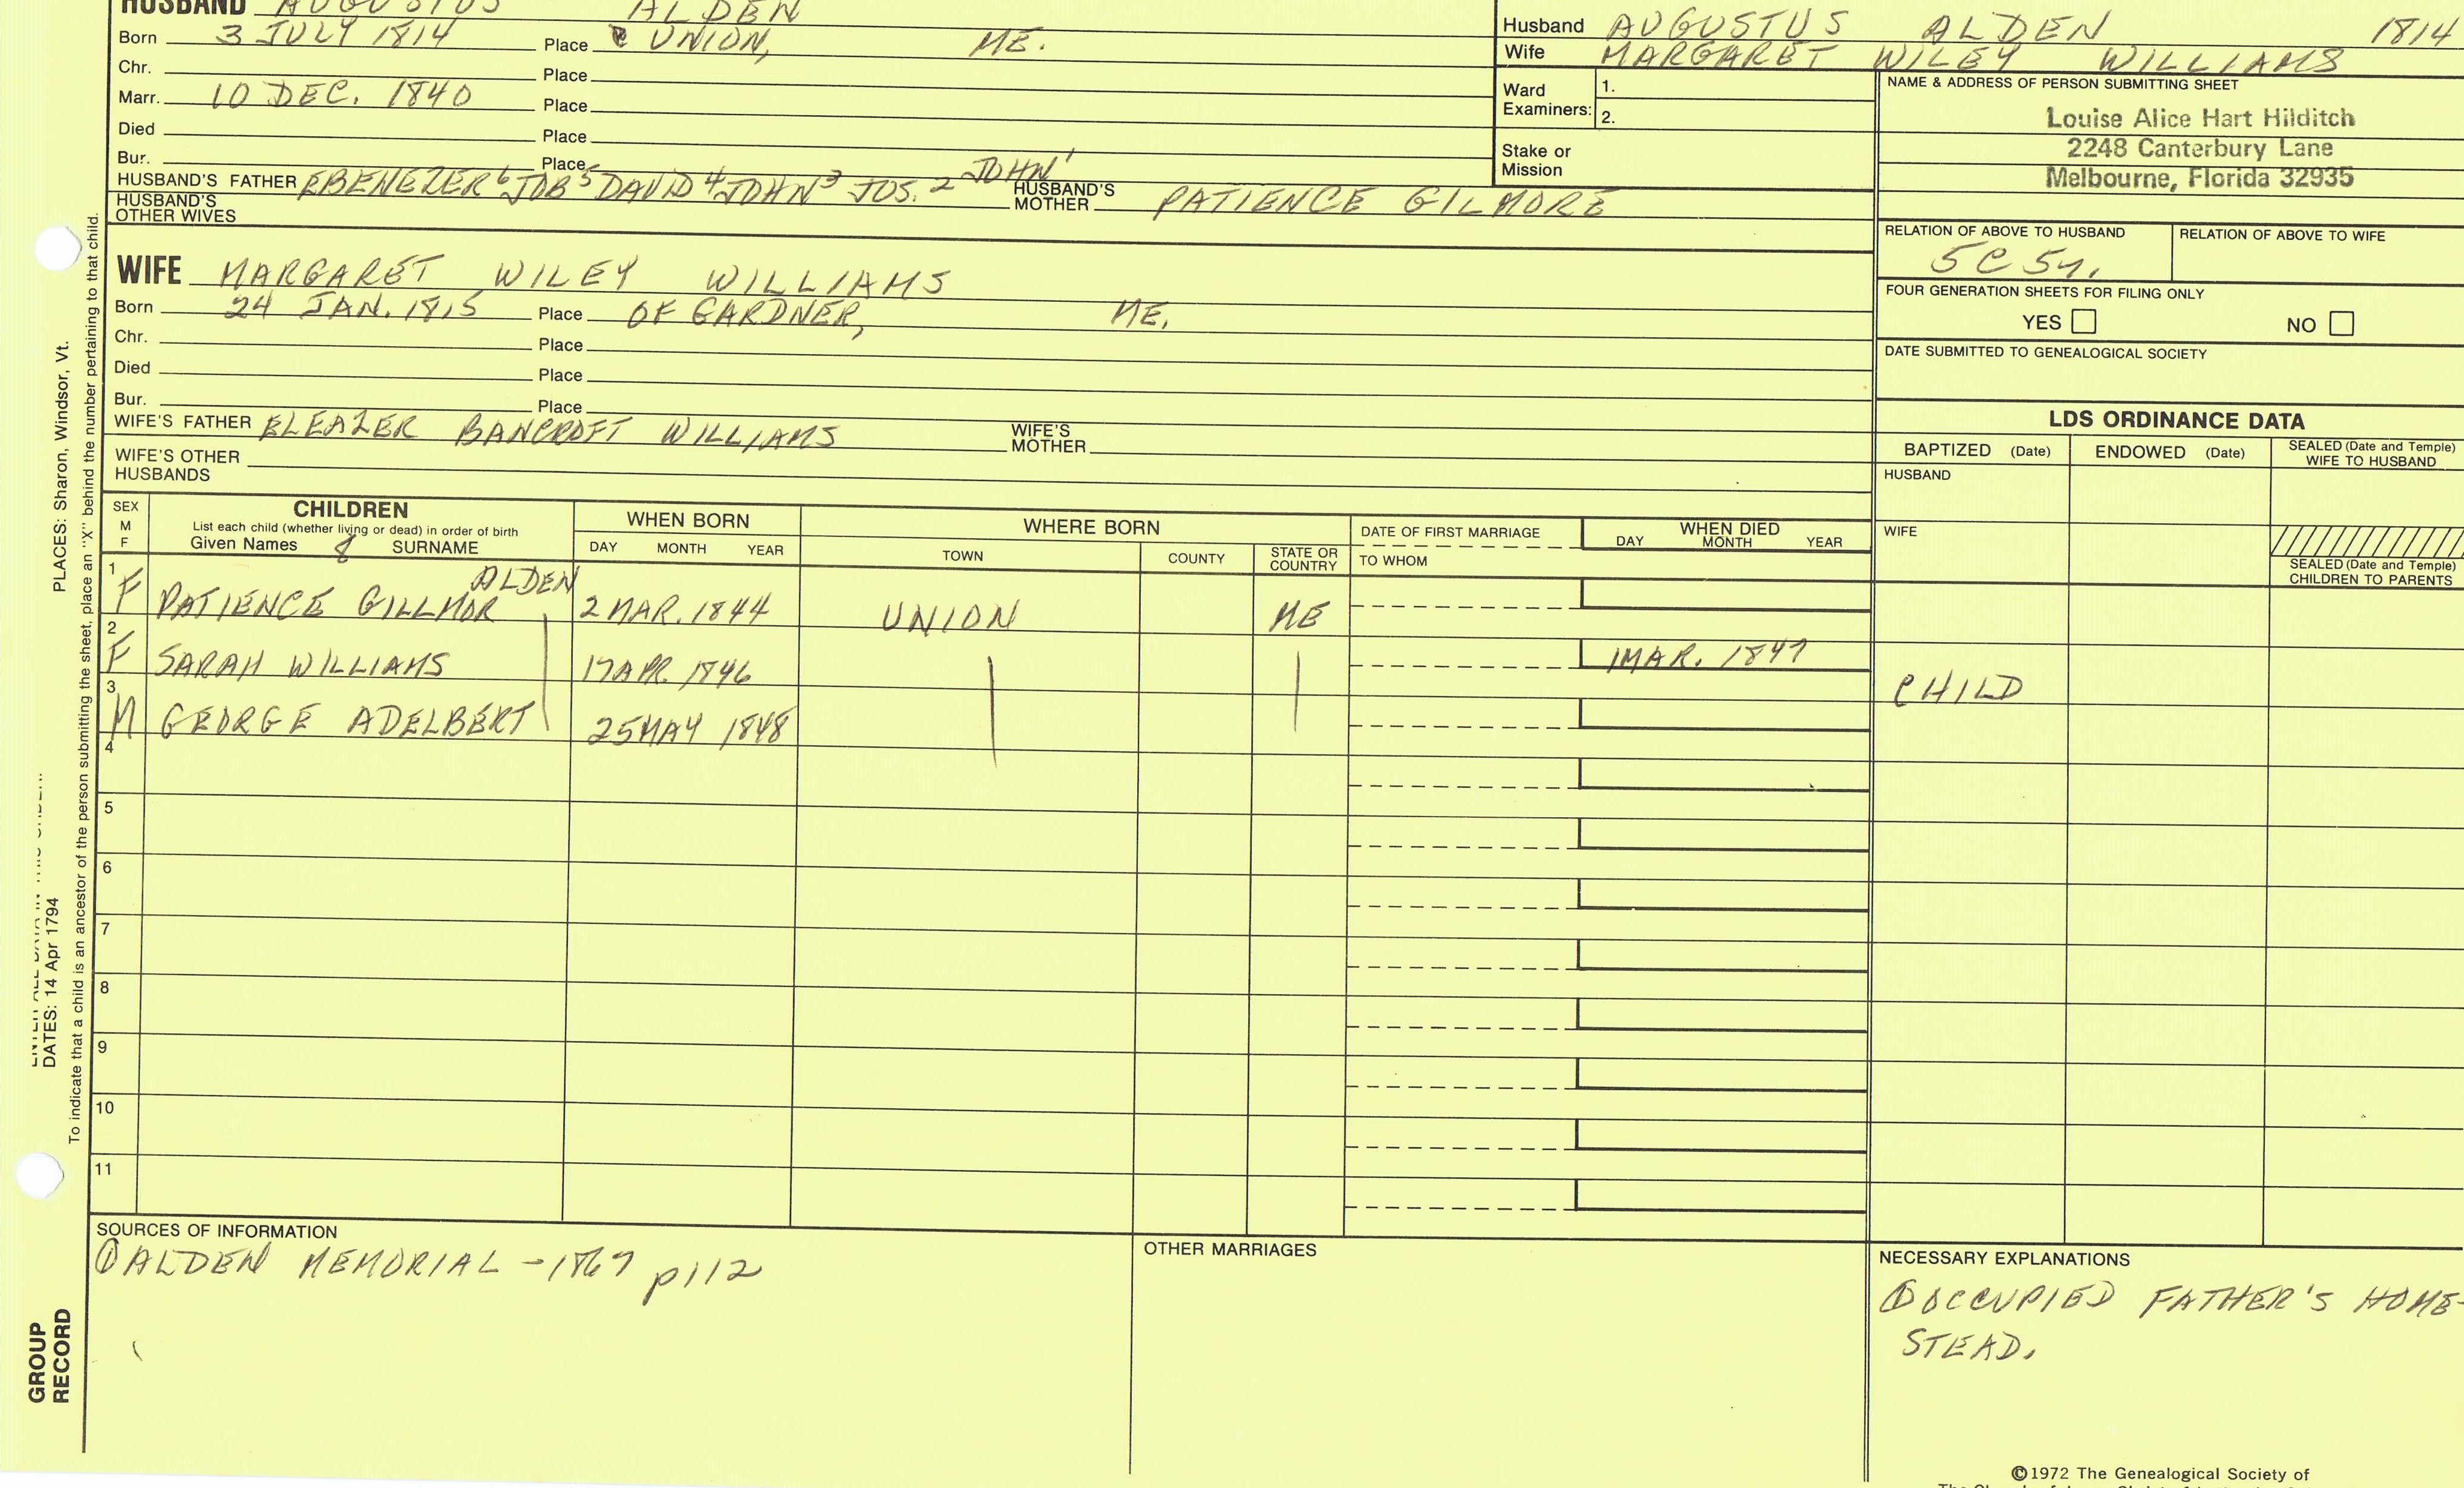 HUSBAND AUGUSTUS ALDEN
Born 3 JULY 1814 Place UNION, ME.
Chr. Place
Marr. 10 DEC. 1840 Place
Died Place
Bur. Place
HUSBAND'S FATHER EBENEZER 6 JOB 5 DAVID 4 JOHN 3 JOS. 2 JOHN 1 HUSBAND'S MOTHER PATIENCE GILMORE
HUSBAND'S OTHER WIVES
Husband AUGUSTUS ALDEN 1814
Wife MARGARET WILEY WILLIAMS
Ward Examiners: 1.
2.
Stake or Mission
NAME & ADDRESS OF PERSON SUBMITTING SHEET
Louise Alice Hart Hilditch
2248 Canterbury Lane
Melbourne, Florida 32935
RELATION OF ABOVE TO HUSBAND RELATION OF ABOVE TO WIFE
5C 5r.
FOUR GENERATION SHEETS FOR FILING ONLY
YES NO
DATE SUBMITTED TO GENEALOGICAL SOCIETY
WIFE MARGARET WILEY WILLIAMS
Born 24 JAN. 1815 Place OF GARDNER, ME.
Chr. Place
Died Place
Bur. Place
WIFE'S FATHER ELEAZER BANCROFT WILLIAMS WIFE'S MOTHER
WIFE'S OTHER HUSBANDS
LDS ORDINANCE DATA
BAPTIZED (Date) ENDOWED (Date) SEALED (Date and Temple) WIFE TO HUSBAND
HUSBAND
WIFE
SEALED (Date and Temple) CHILDREN TO PARENTS
SEX M F CHILDREN WHEN BORN WHERE BORN DATE OF FIRST MARRIAGE WHEN DIED
List each child (whether living or dead) in order of birth
Given Names 8 SURNAME DAY MONTH YEAR TOWN COUNTY STATE OR COUNTRY TO WHOM DAY MONTH YEAR
1 F PATIENCE GILLMOR ALDEN 2 MAR. 1844 UNION ME
2 F SARAH WILLIAMS 17 APR. 1846 1 MAR. 1847 CHILD
3 M GEORGE ADELBERT 25 MAY 1848
4
5
6
7
8
9
10
11
SOURCES OF INFORMATION
① ALDEN MEMORIAL - 1867 p112
OTHER MARRIAGES
NECESSARY EXPLANATIONS
① OCCUPIED FATHER'S HOME-
STEAD.
©1972 The Genealogical Society of
PLACES: Sharon, Windsor, Vt.
DATES: 14 Apr 1794
To indicate that a child is an ancestor of the person submitting the sheet, place an "X" behind the number pertaining to that child.
GROUP
RECORD